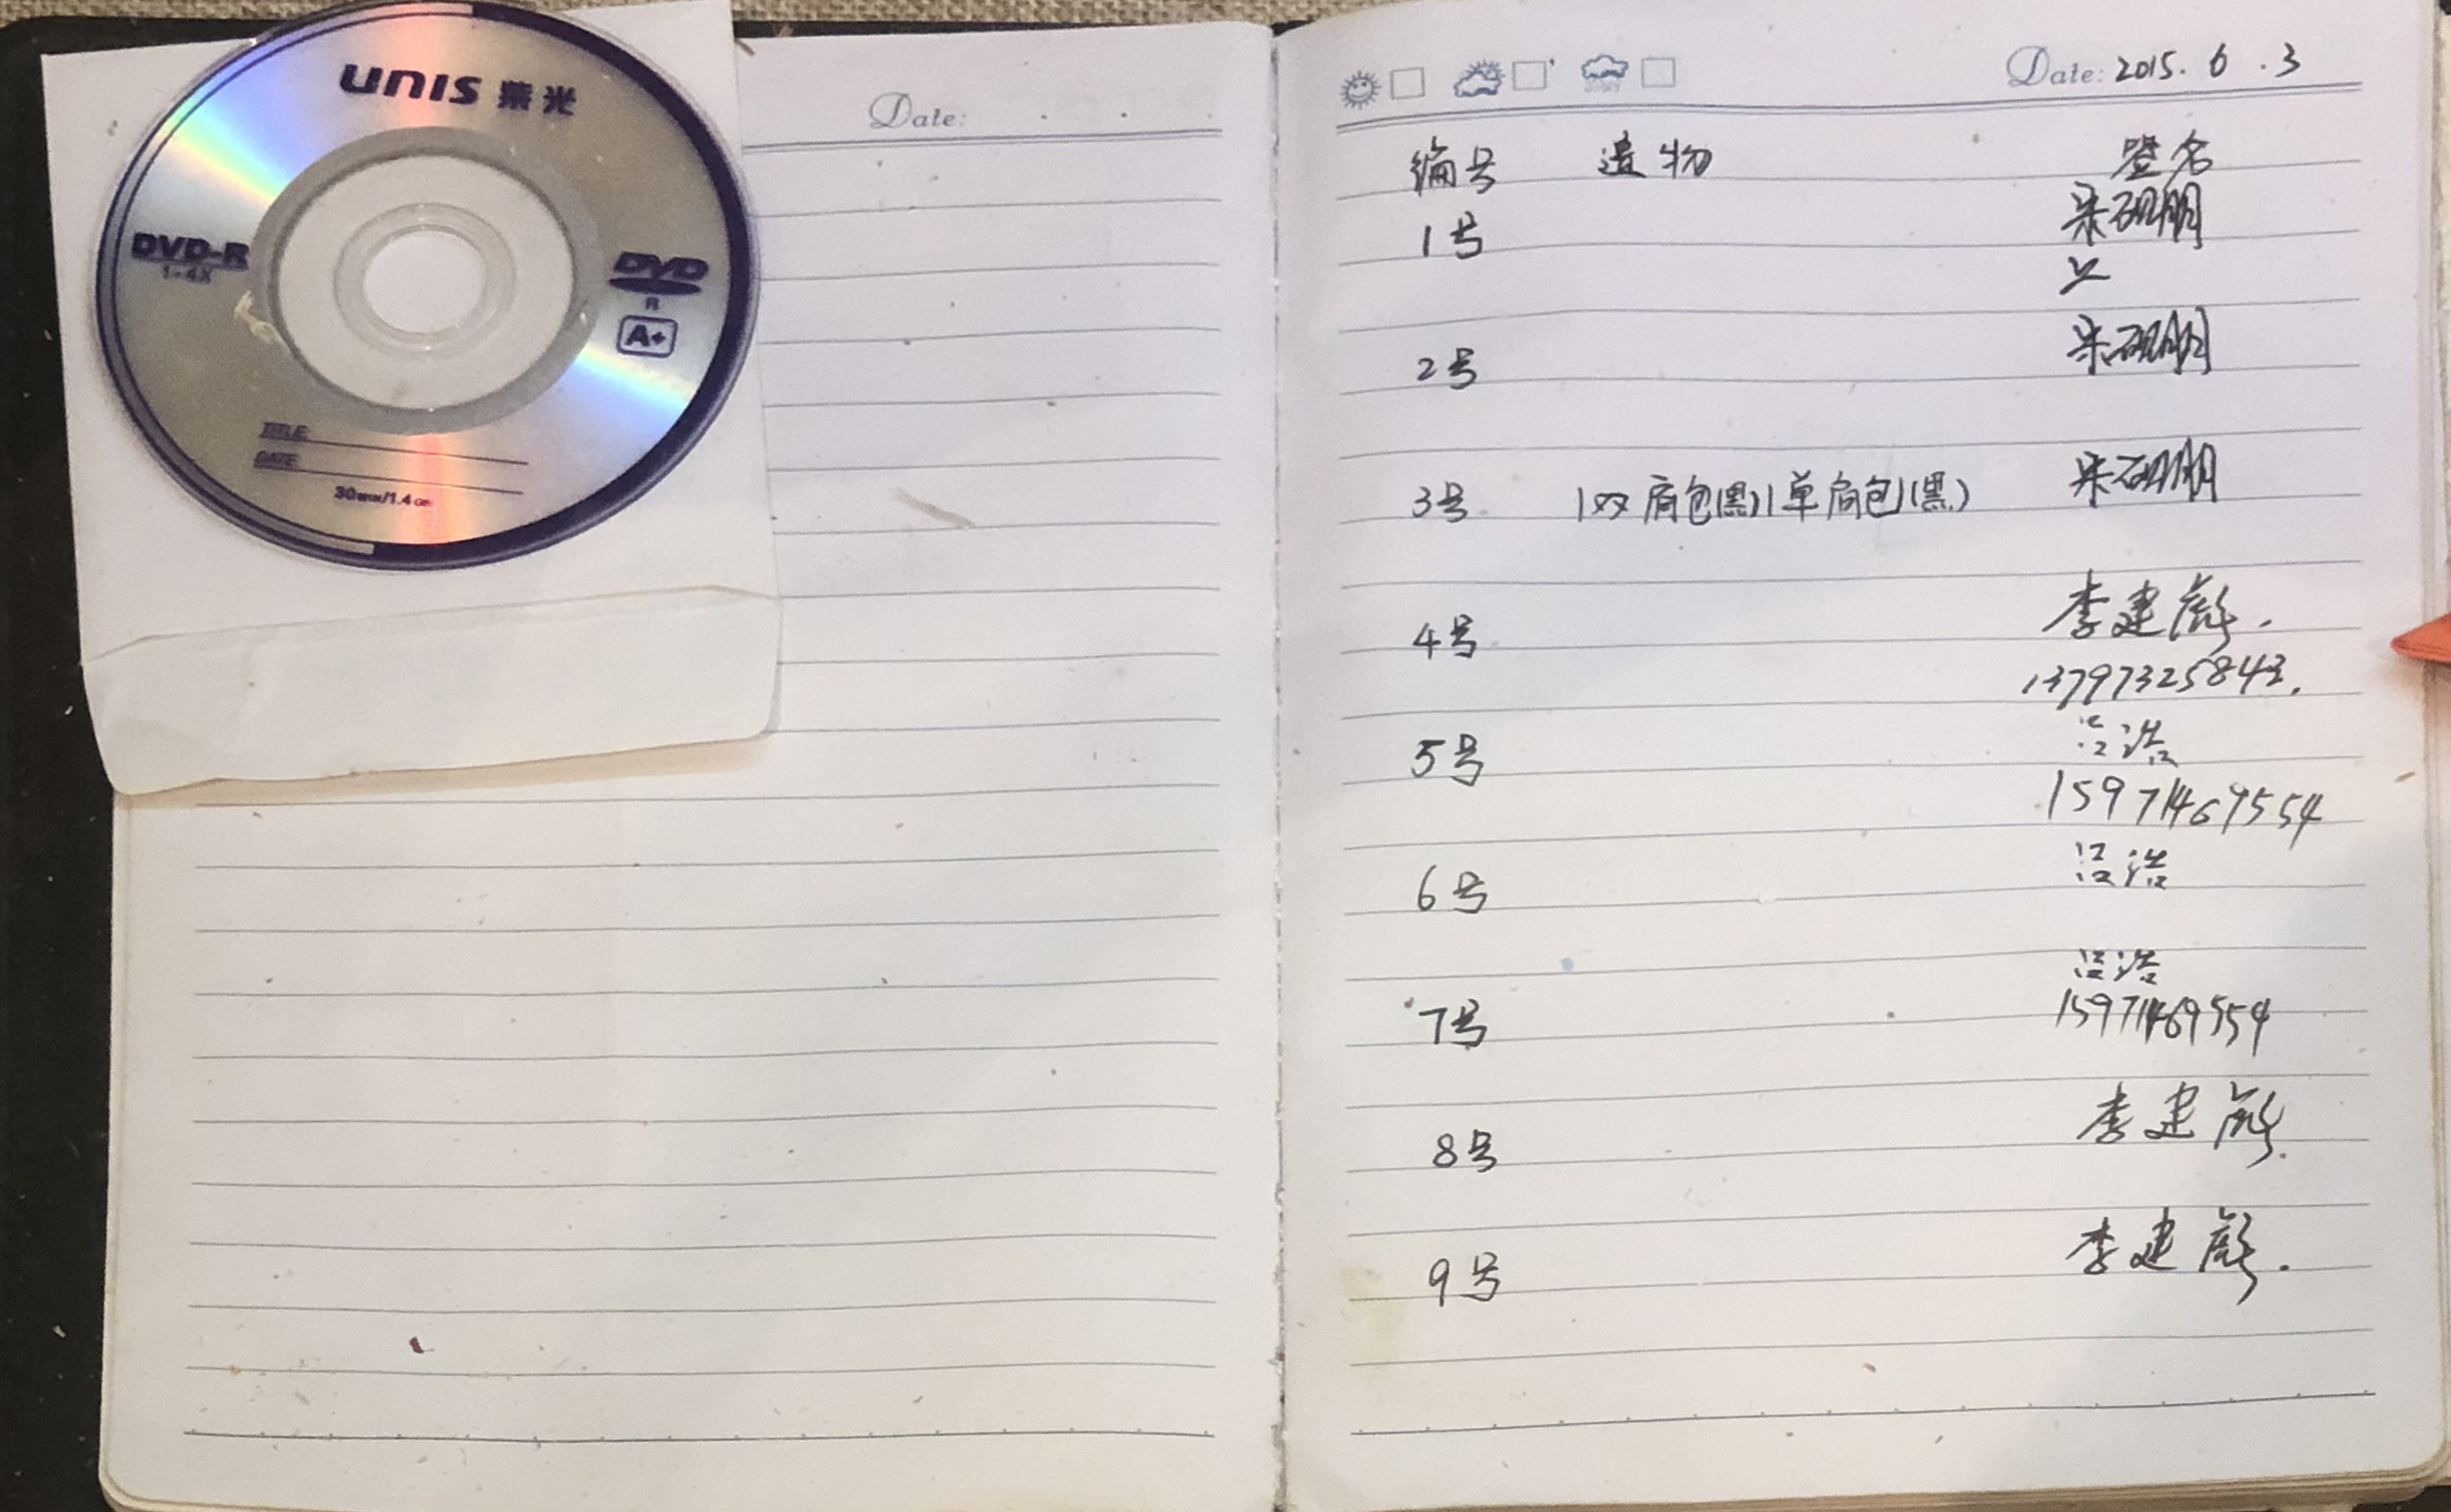 unis 紫光
DVD-R
1-4X
DVD
R
A+
TITLE:
DATE:
30min/1.4GB
Date:
Date: 2015. 6 .3
编号 遗物 签名
1号 朱砚明
2号 朱砚明
3号 1双肩包(黑)1单肩包(黑) 朱砚明
4号 李建彪.
13797325843.
5号 浩
15971469554
6号 浩
7号 浩
15971469554
8号 李建彪.
9号 李建彪.